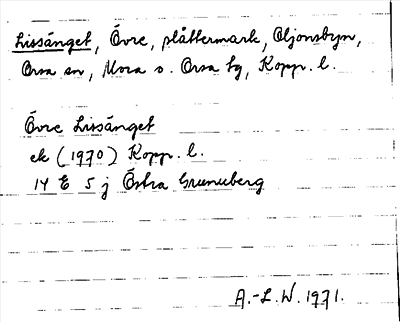 Lissänget, Övre, slåttermark, Oljonsbyn,
Orsa sn, Mora o. Orsa tg, Kopp. l.
Övre Lissänget
ek (1970) Kopp. l.
14 E 5 j Östra Grunuberg
A.-L.W. 1971.